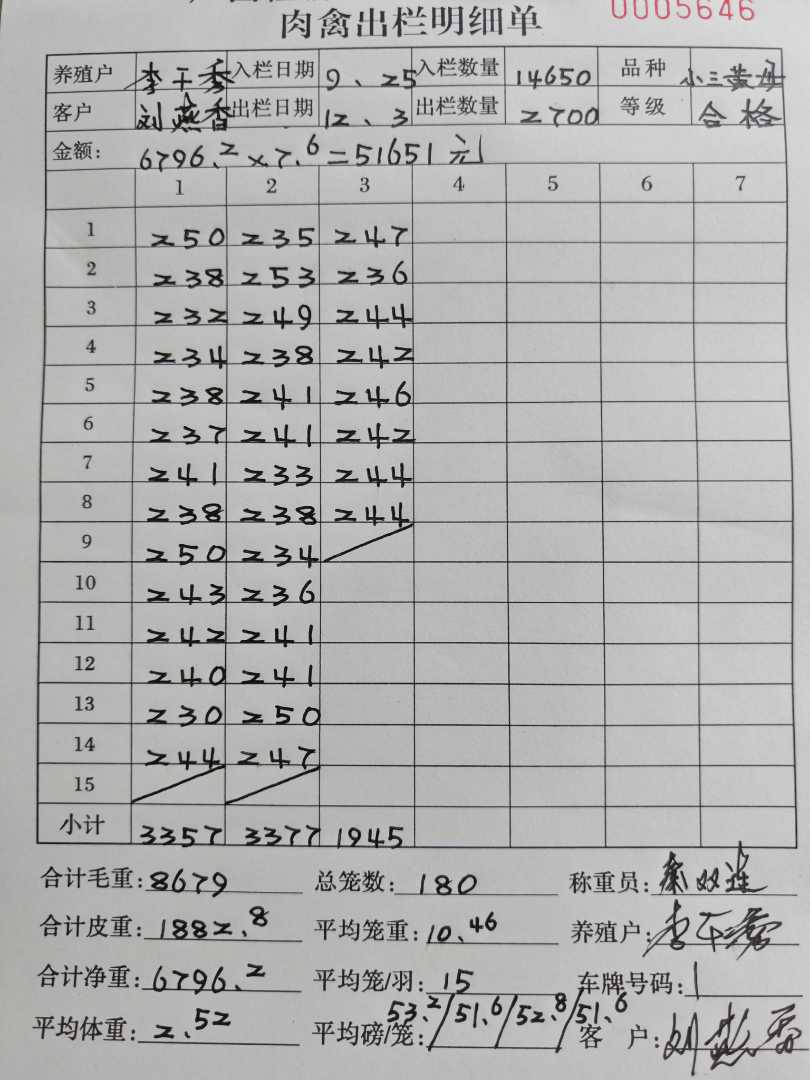 0005646
肉禽出栏明细单
养殖户 李干秀 入栏日期 9、25 入栏数量 14650 品种 小三黄丹
客户 刘燕香 出栏日期 12、3 出栏数量 2700 等级 合格
金额: 6796.2×7.6=51651元
1 2 3 4 5 6 7
1 250 235 247
2 238 253 236
3 232 249 244
4 234 238 242
5 238 241 246
6 237 241 242
7 241 233 244
8 238 238 244
9 250 234
10 243 236
11 242 241
12 240 241
13 230 250
14 244 247
15
小计 3357 3377 1945
合计毛重: 8679 总笼数: 180 称重员:
合计皮重: 1882.8 平均笼重: 10.46 养殖户:
合计净重: 6796.2 平均笼/羽: 15 车牌号码:
平均体重: 2.52 平均磅/笼: 53.2/51.6/52.8/51.6 客户: 刘燕香